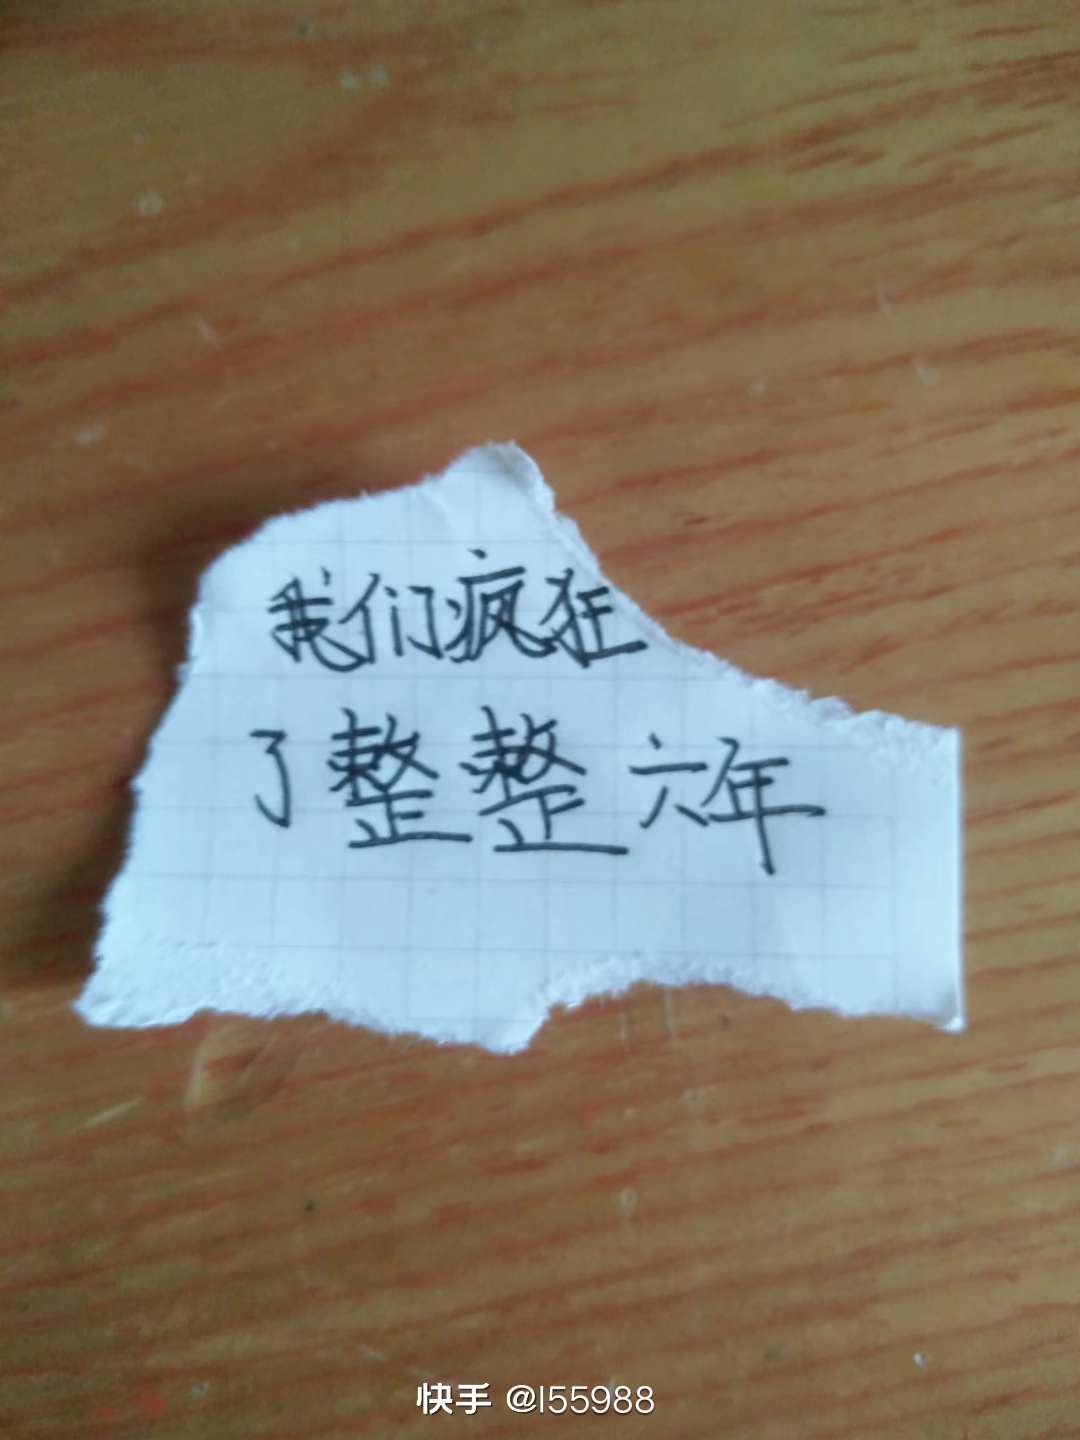 我们疯狂
了整整六年
快手 @l55988